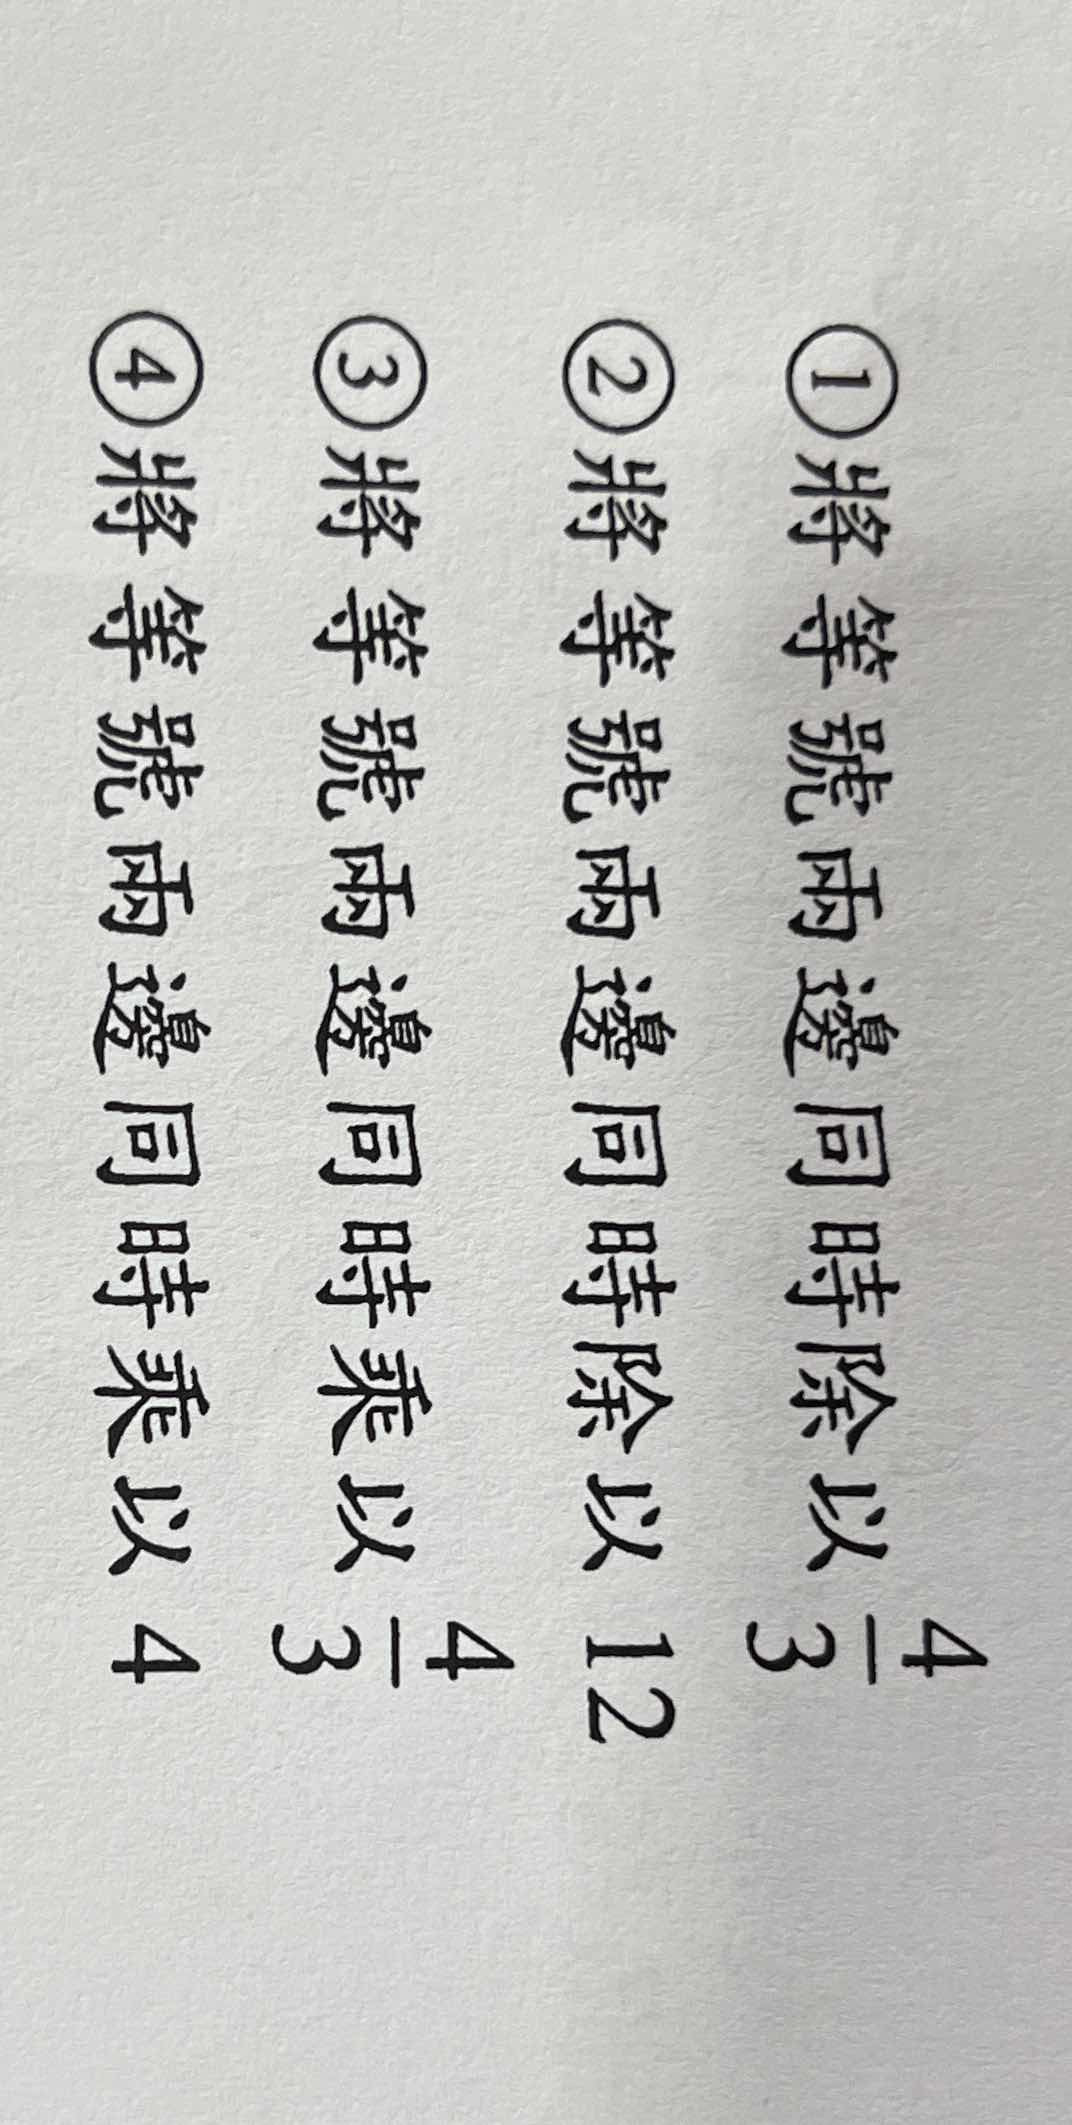 ①將等號兩邊同時除以 4/3
②將等號兩邊同時除以 12
③將等號兩邊同時乘以 4/3
④將等號兩邊同時乘以 4